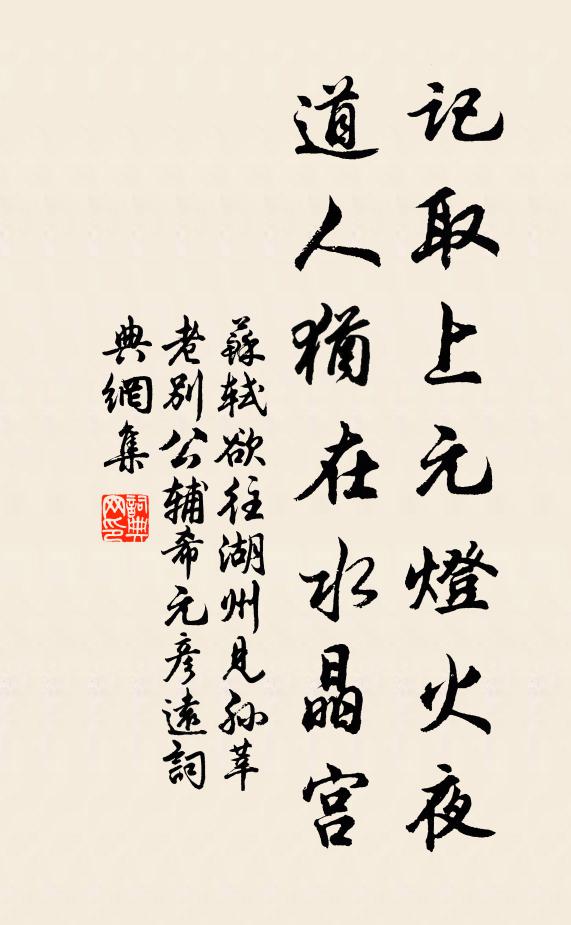 記取上元燈火夜
道人猶在水晶宫
蘇軾欲往湖州見孫莘
老别公辅希元彦遠詞
典網集
詞典网印